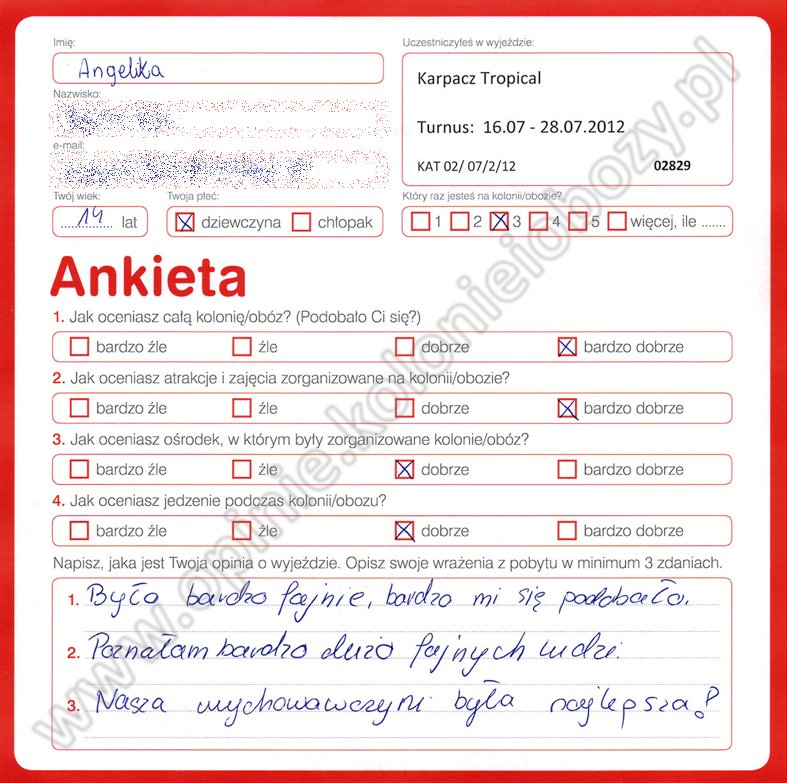 Imię:
Angelika
Uczestniczyłeś w wyjeździe:
Karpacz Tropical
Turnus: 16.07 - 28.07.2012
KAT 02/ 07/2/12 02829
Nazwisko:
e-mail:
Twój wiek:
14 lat
Twoja płeć:
dziewczyna chłopak
Który raz jesteś na kolonii/obozie?
1 2 3 4 5 więcej, ile .......
Ankieta
1. Jak oceniasz całą kolonię/obóz? (Podobało Ci się?)
bardzo źle źle dobrze bardzo dobrze
2. Jak oceniasz atrakcje i zajęcia zorganizowane na kolonii/obozie?
bardzo źle źle dobrze bardzo dobrze
3. Jak oceniasz ośrodek, w którym były zorganizowane kolonie/obóz?
bardzo źle źle dobrze bardzo dobrze
4. Jak oceniasz jedzenie podczas kolonii/obozu?
bardzo źle źle dobrze bardzo dobrze
Napisz, jaka jest Twoja opinia o wyjeździe. Opisz swoje wrażenia z pobytu w minimum 3 zdaniach.
1. Było bardzo fajnie, bardzo mi się podobało.
2. Poznałam bardzo dużo fajnych ludzi.
3. Nasza wychowawczyni była najlepsza!
www.opinie.kolonieiobozy.pl